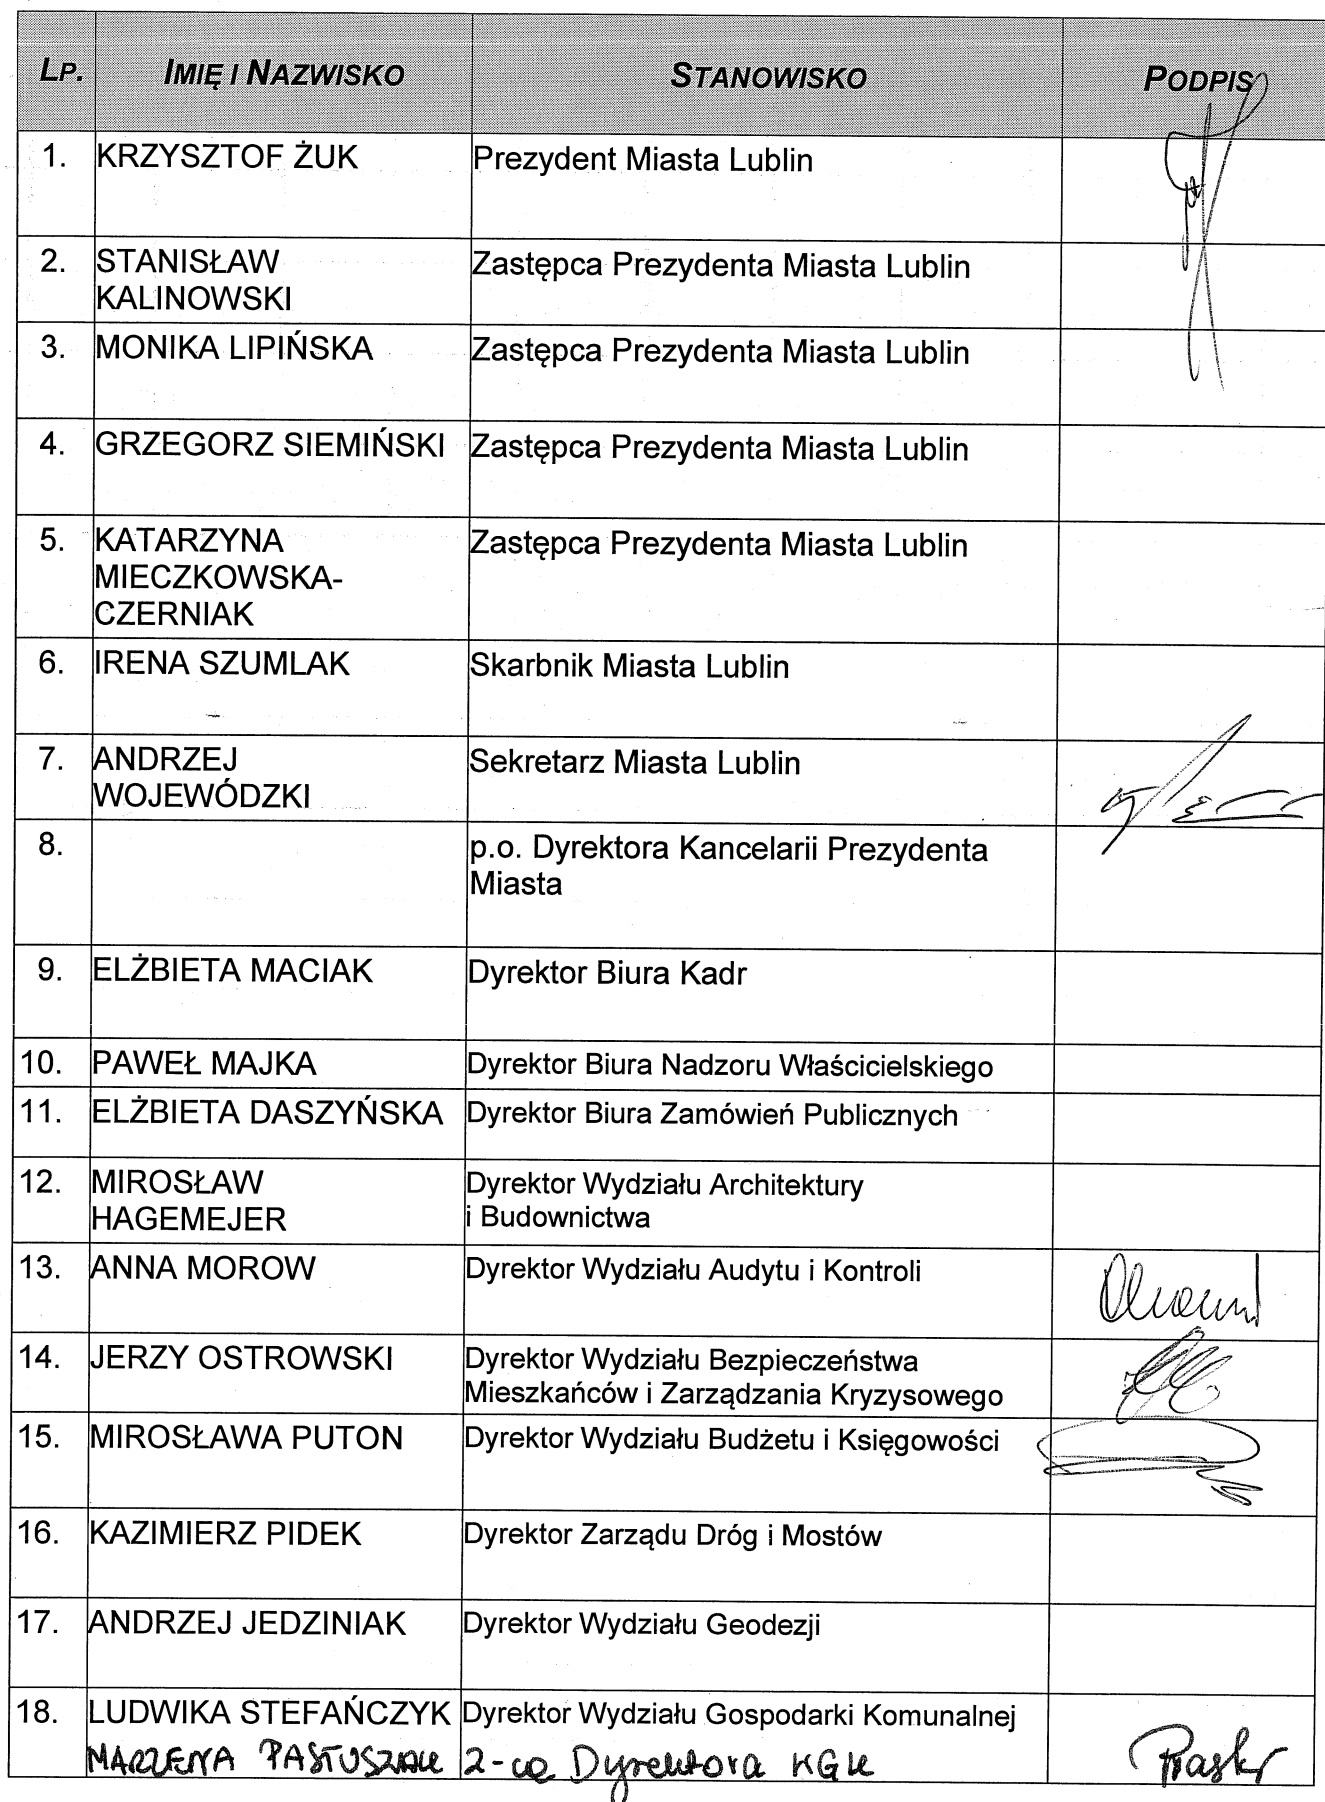 LP. IMIĘ I NAZWISKO STANOWISKO PODPIS
1. KRZYSZTOF ŻUK Prezydent Miasta Lublin
2. STANISŁAW Zastępca Prezydenta Miasta Lublin
KALINOWSKI
3. MONIKA LIPIŃSKA Zastępca Prezydenta Miasta Lublin
4. GRZEGORZ SIEMIŃSKI Zastępca Prezydenta Miasta Lublin
5. KATARZYNA Zastępca Prezydenta Miasta Lublin
MIECZKOWSKA-
CZERNIAK
6. IRENA SZUMLAK Skarbnik Miasta Lublin
7. ANDRZEJ Sekretarz Miasta Lublin
WOJEWÓDZKI
8. p.o. Dyrektora Kancelarii Prezydenta
Miasta
9. ELŻBIETA MACIAK Dyrektor Biura Kadr
10. PAWEŁ MAJKA Dyrektor Biura Nadzoru Właścicielskiego
11. ELŻBIETA DASZYŃSKA Dyrektor Biura Zamówień Publicznych
12. MIROSŁAW Dyrektor Wydziału Architektury
HAGEMEJER i Budownictwa
13. ANNA MOROW Dyrektor Wydziału Audytu i Kontroli
14. JERZY OSTROWSKI Dyrektor Wydziału Bezpieczeństwa
Mieszkańców i Zarządzania Kryzysowego
15. MIROSŁAWA PUTON Dyrektor Wydziału Budżetu i Księgowości
16. KAZIMIERZ PIDEK Dyrektor Zarządu Dróg i Mostów
17. ANDRZEJ JEDZINIAK Dyrektor Wydziału Geodezji
18. LUDWIKA STEFAŃCZYK Dyrektor Wydziału Gospodarki Komunalnej
MARZENA PASTUSZAK Z-ca Dyrektora KGK